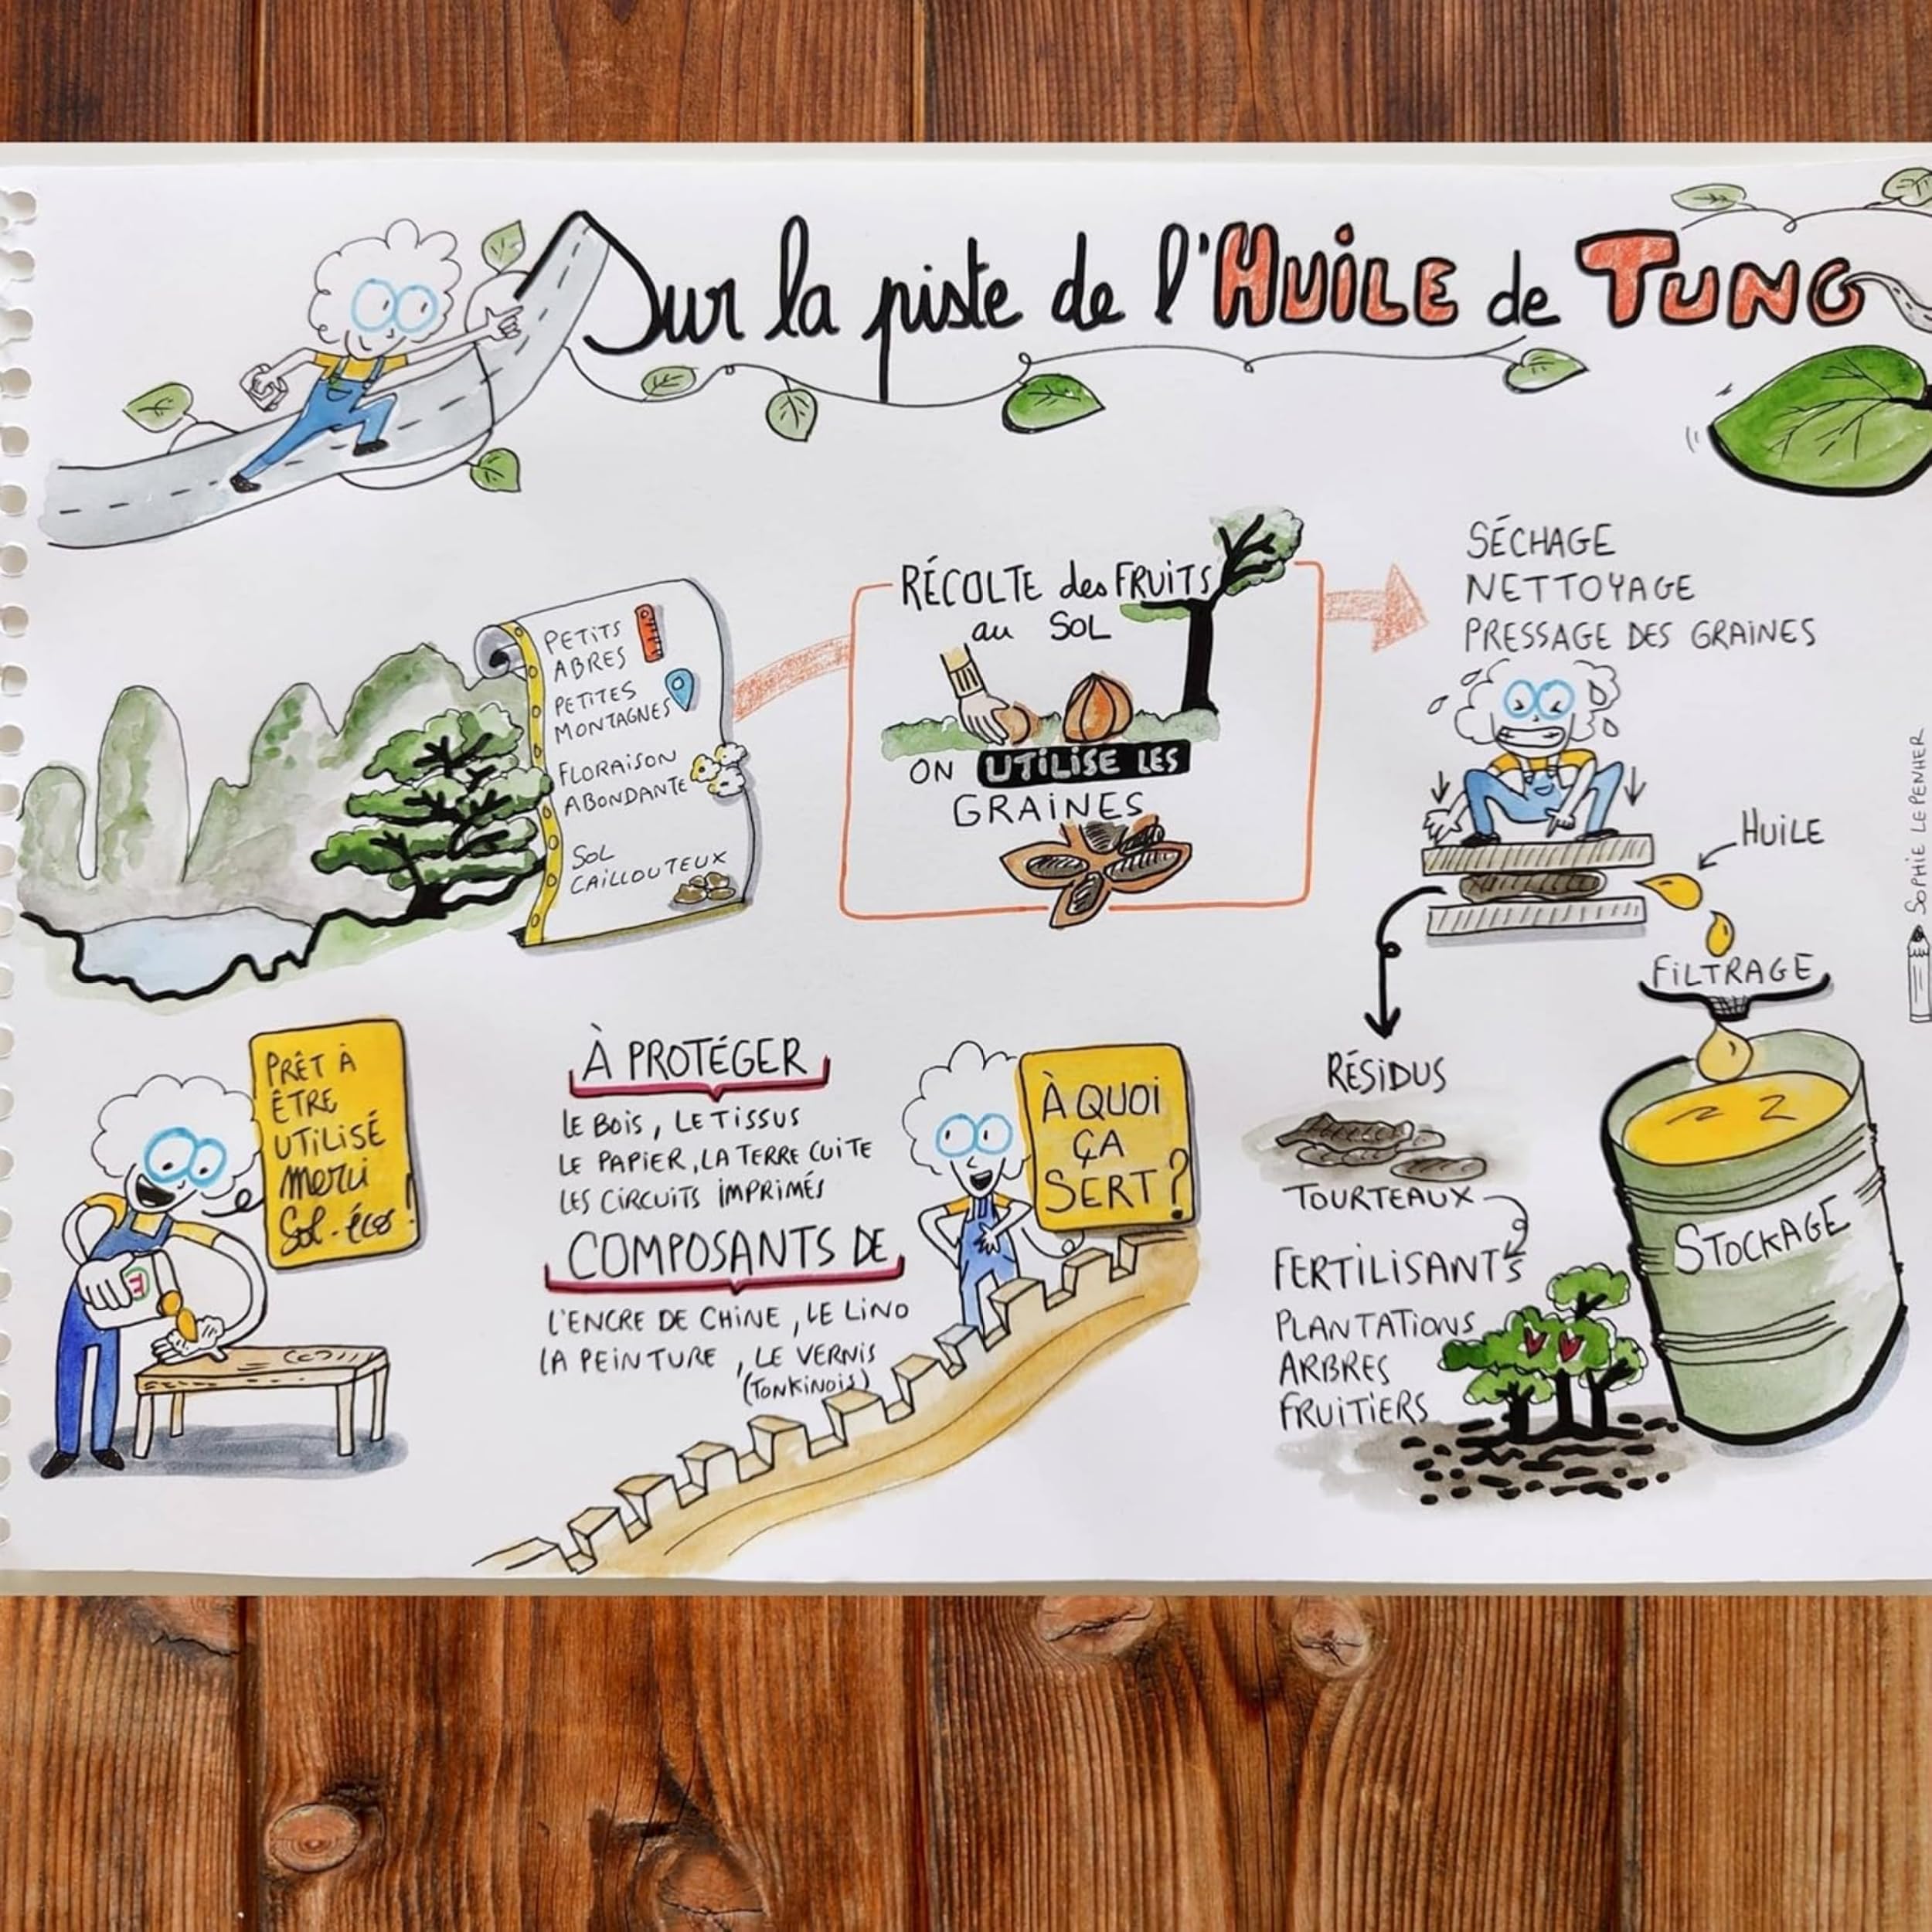 Sur la piste de l'HUILE de TUNG
PETITS
ABRES
PETITES
MONTAGNES
FLORAISON
ABONDANTE
SOL
CAILLOUTEUX
RÉCOLTE des FRUITS
au SOL
ON UTILISE LES
GRAINES
SÉCHAGE
NETTOYAGE
PRESSAGE DES GRAINES
HUILE
FILTRAGE
STOCKAGE
RÉSIDUS
TOURTEAUX
FERTILISANTS
PLANTATIONS
ARBRES
FRUITIERS
À QUOI
ÇA
SERT?
À PROTÉGER
LE BOIS, LE TISSUS
LE PAPIER, LA TERRE CUITE
LES CIRCUITS IMPRIMÉS
COMPOSANTS DE
L'ENCRE DE CHINE, LE LINO
LA PEINTURE, LE VERNIS
(TONKINOIS)
PRÊT À
ÊTRE
UTILISÉ
merci
Sol-éco!
SOPHIE LE PENHER